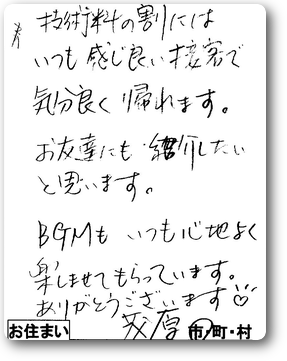 技術料の割には
いつも感じ良い接客で
気分良く帰れます。
お友達にも紹介したい
と思います。
BGMも いつも心地よく
楽しませてもらっています。
ありがとうございます
お住まい 茂原 市・町・村